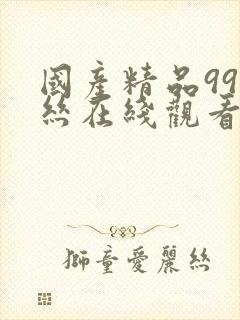 國產精品99
絲在綫觀看
獅童愛麗絲